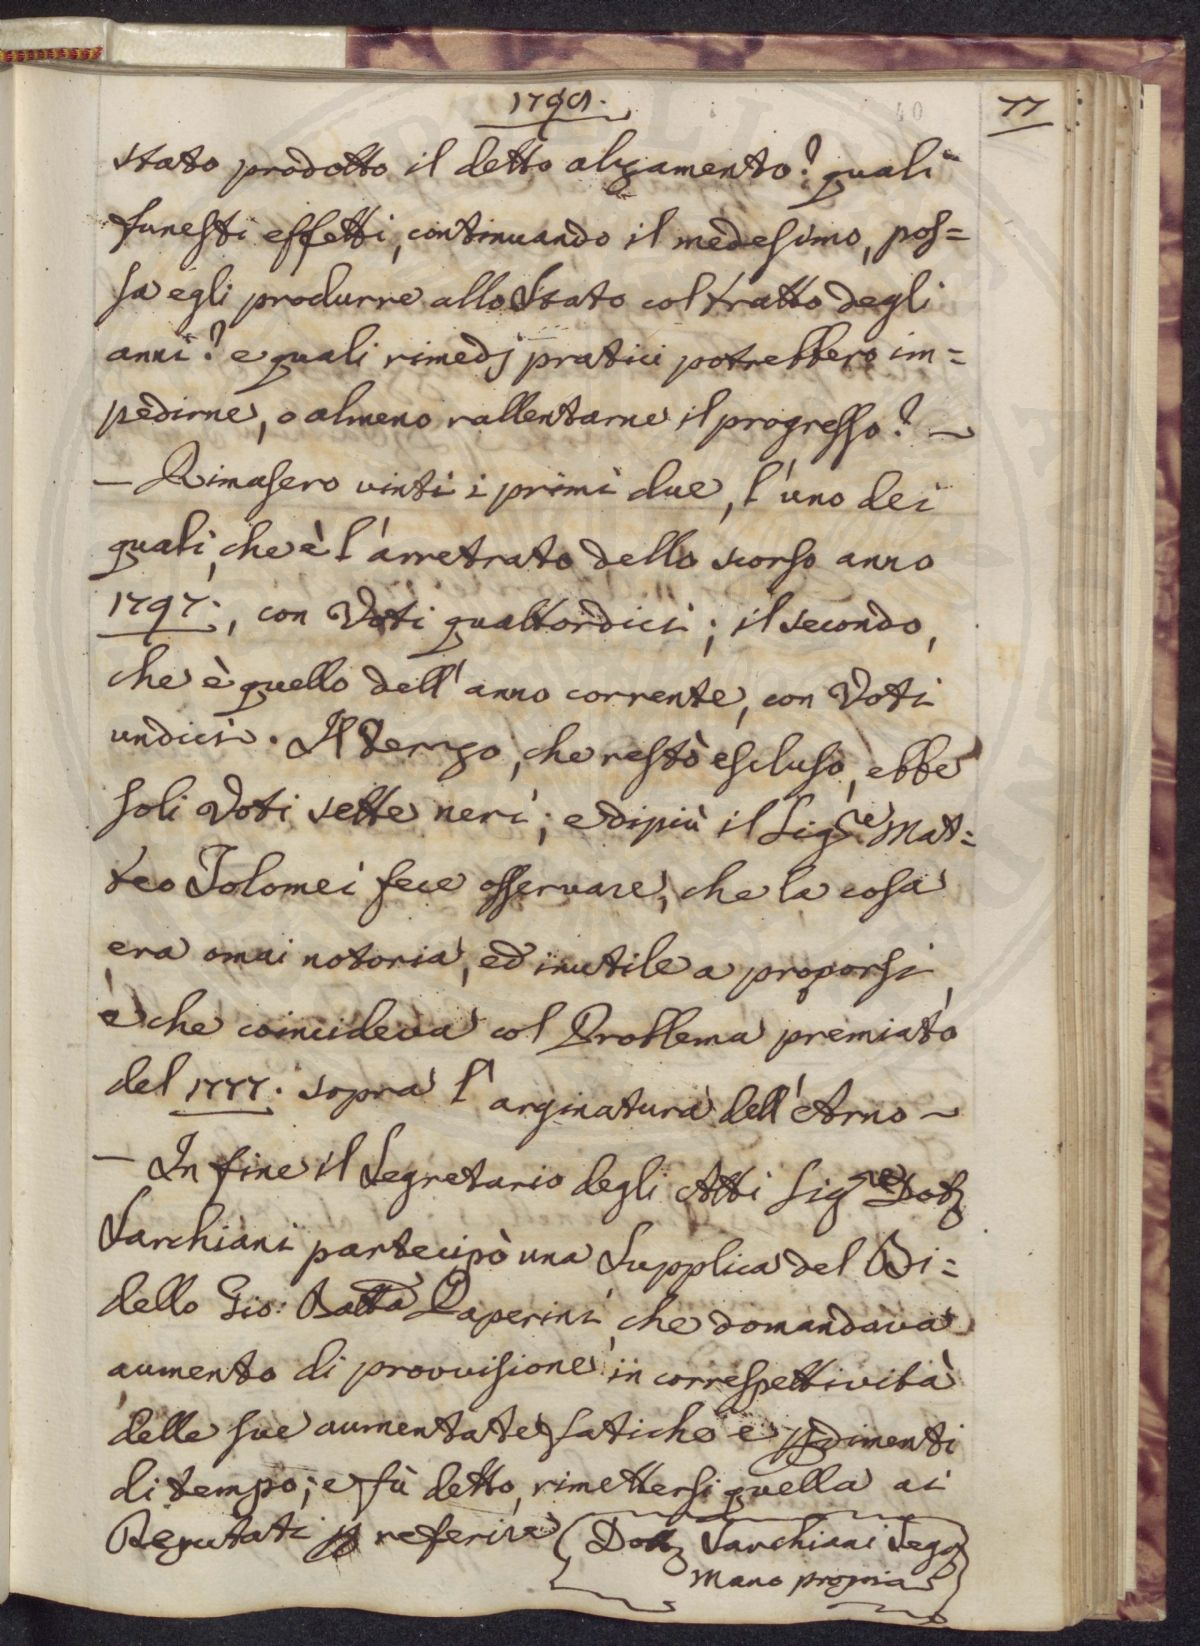 1798.
40
77
stato prodotto il detto alzamento? quali
funesti effetti, continuando il medesimo, pos=
sa egli produrre allo Stato col tratto degli
anni? e quali rimedj pratici potrebbero im=
pedirne, o almeno rallentarne il progresso? ~
— Rimasero vinti i primi due, l'uno dei
quali, che è l'arretrato dello scorso anno
1797., con Voti quattordici; il secondo,
che è quello dell'anno corrente, con Voti
undici. Il Terzo, che restò escluso, ebbe
soli Voti sette neri; e di più il Sig.re Mat=
teo Tolomei fece osservare, che la cosa
era omai notoria, ed inutile a proporsi,
e che coincideva col Problema premiato
del 1777. sopra l'arginatura dell'Arno ~
— In fine il Segretario degli Atti Sig.re Dott
Sarchiani partecipò una Supplica del Bi=
dello Gio: Batta Paperini, che domandava
aumento di provvisione in correspettività
delle sue aumentate fatiche e pdimenti
di tempo; e fù detto, rimettersi quella ai
Deputati p referire (Dott Sarchiani Seg.
mano propria)